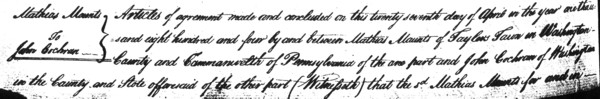 Mathias Mounts
To
John Cochran
Articles of agreement made and concluded on this twenty seventh day of April in the year one thou
sand eight hundred and four by and between Mathias Mounts of Taylors Town in Washington
County and Commonwealth of Pennsylvania of the one part and John Cochran of Washington
in the County and State afforesaid of the other part (Witnesseth) that the sd Mathias Mounts for and in